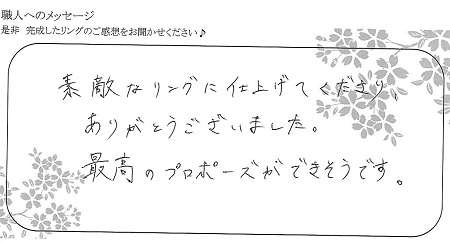 職人へのメッセージ
是非 完成したリングのご感想をお聞かせください♪
素敵なリングに仕上げてくださり、
ありがとうございました。
最高のプロポーズができそうです。